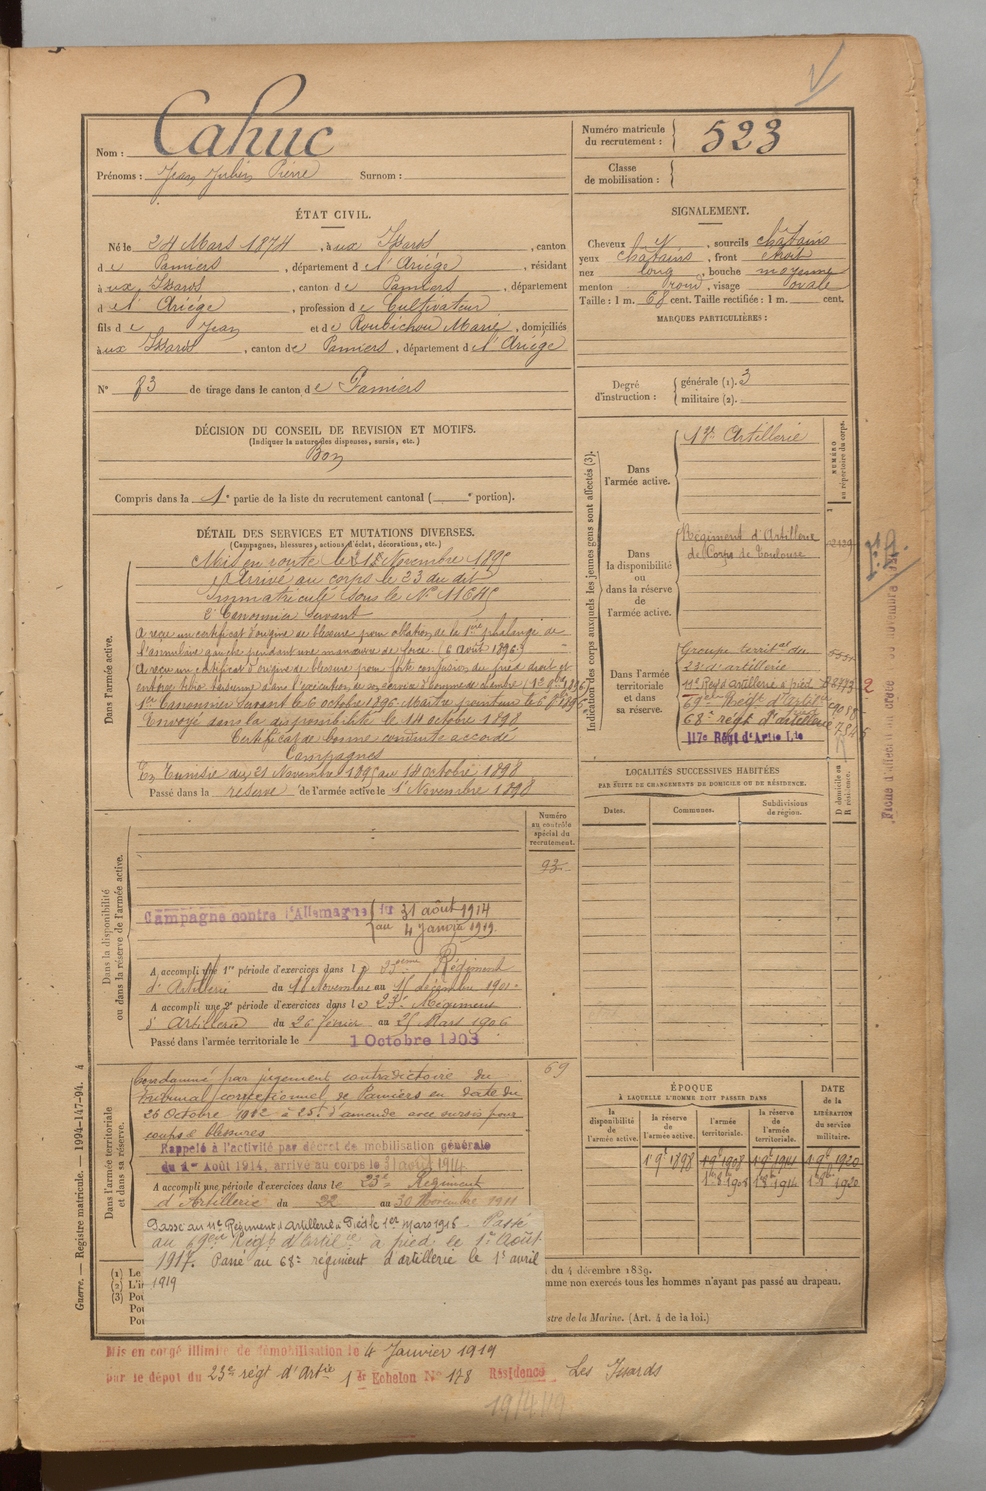 Nom : Cahuc
Prénoms : Jean Julien Pierre Surnom :
Numéro matricule du recrutement : 523
Classe de mobilisation :
ÉTAT CIVIL.
Né le 24 Mars 1874, à ux Issards, canton
de Pamiers, département de l'Ariège, résidant
à ux Issards, canton de Pamiers, département
de l'Ariège, profession de Cultivateur
fils de Jean et de Roubichou Marie, domiciliés
à ux Issards, canton de Pamiers, département de l'Ariège
N° 83 de tirage dans le canton de Pamiers
SIGNALEMENT.
Cheveux, sourcils châtains
yeux châtains, front étroit
nez long, bouche moyenne
menton rond, visage ovale
Taille : 1 m. 68 cent. Taille rectifiée : 1 m. cent.
MARQUES PARTICULIÈRES :
Degré d'instruction : générale (1). 3
militaire (2).
DÉCISION DU CONSEIL DE REVISION ET MOTIFS.
(Indiquer la nature des dispenses, sursis, etc.)
Bon
Compris dans la 1e partie de la liste du recrutement cantonal ( e portion).
DÉTAIL DES SERVICES ET MUTATIONS DIVERSES.
(Campagnes, blessures, actions d'éclat, décorations, etc.)
Dans l'armée active.
Mis en route le Novembre 1895
Arrivé au corps le 23 du dit
Immatriculé sous le N° 11645
2e Canonnier servant
A reçu un certificat d'origine de blessure pour ablation de la 1ère phalange de
l'annulaire gauche pendant une manœuvre de force (6 août 1896)
A reçu un certificat d'origine de blessure pour forte contusion au pied droit et
1er Canonnier servant le 6 octobre 1896.
Envoyé dans la disponibilité le 14 octobre 1898
Certificat de bonne conduite accordé
Campagnes
En Tunisie du 21 Novembre 1895 au 14 octobre 1898
Passé dans la réserve de l'armée active le 1er Novembre 1898
Indication des corps auxquels les jeunes gens sont affectés (3).
NUMÉRO au répertoire du corps.
Dans l'armée active.
Artillerie
Dans la disponibilité ou dans la réserve de l'armée active.
Régiment d'Artillerie
de Corps de Toulouse
Dans l'armée territoriale et dans sa réserve.
Groupe territal du
23e d'artillerie
11e Régt d'artillerie à pied
69e Régt d'Artie
68e régt d'artillerie
117e Régt d'Artie Lde
LOCALITÉS SUCCESSIVES HABITÉES
PAR SUITE DE CHANGEMENTS DE DOMICILE OU DE RÉSIDENCE.
Dates. Communes. Subdivisions de région. D domicile ou R résidence.
Dans la disponibilité ou dans la réserve de l'armée active.
Numéro au contrôle spécial du recrutement.
93
Campagne contre l'Allemagne du 31 août 1914
au 4 Janvier 1919
A accompli une 1re période d'exercices dans le 23ème Régiment
d'Artillerie du 18 Novembre au 15 décembre 1901.
A accompli une 2e période d'exercices dans le 23e Régiment
d'Artillerie du 26 février au 25 Mars 1906
Passé dans l'armée territoriale le 1 Octobre 1908
Dans l'armée territoriale et dans sa réserve.
69
Condamné par jugement contradictoire du
tribunal correctionnel de Pamiers en date du
26 octobre 1912 à 25f d'amende avec sursis pour
coups & blessures
Rappelé à l'activité par décret de mobilisation générale
du 1er Août 1914, arrivé au corps le 31 août 1914
A accompli une période d'exercices dans le 23e Régiment
d'Artillerie du 22 au 30 Novembre 1911
Passé au 11e Régiment d'Artillerie à Pied le 1er Mars 1916 Passé
au 69ème Régt d'Artie à pied le 1er Août
1917. Passé au 68e régiment d'artillerie le 1er avril
1919
ÉPOQUE
À LAQUELLE L'HOMME DOIT PASSER DANS
la disponibilité de l'armée active. la réserve de l'armée active. l'armée territoriale. la réserve de l'armée territoriale. DATE de la LIBÉRATION du service militaire.
1 9e 1898 1 9e 1908 1 9e 1914 1 9e 1920
1920
(1) Le
(2) L'in
(3) Pou
Pou
Pou
du 4 décembre 1889.
mme non exercés tous les hommes n'ayant pas passé au drapeau.
stre de la Marine. (Art. 4 de la loi.)
Guerre. — Registre matricule. — 1994-147-94. 4
Mis en congé illimité de démobilisation le 4 Janvier 1919
par le dépôt du 23e régt d'Artie 1er Échelon N° 178 Résidence Les Issards
19/4/19